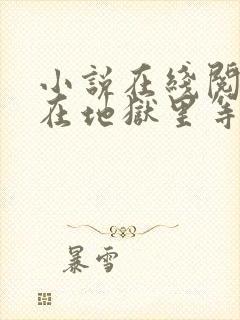 小説在綫閱
在地獄里等
暴雪